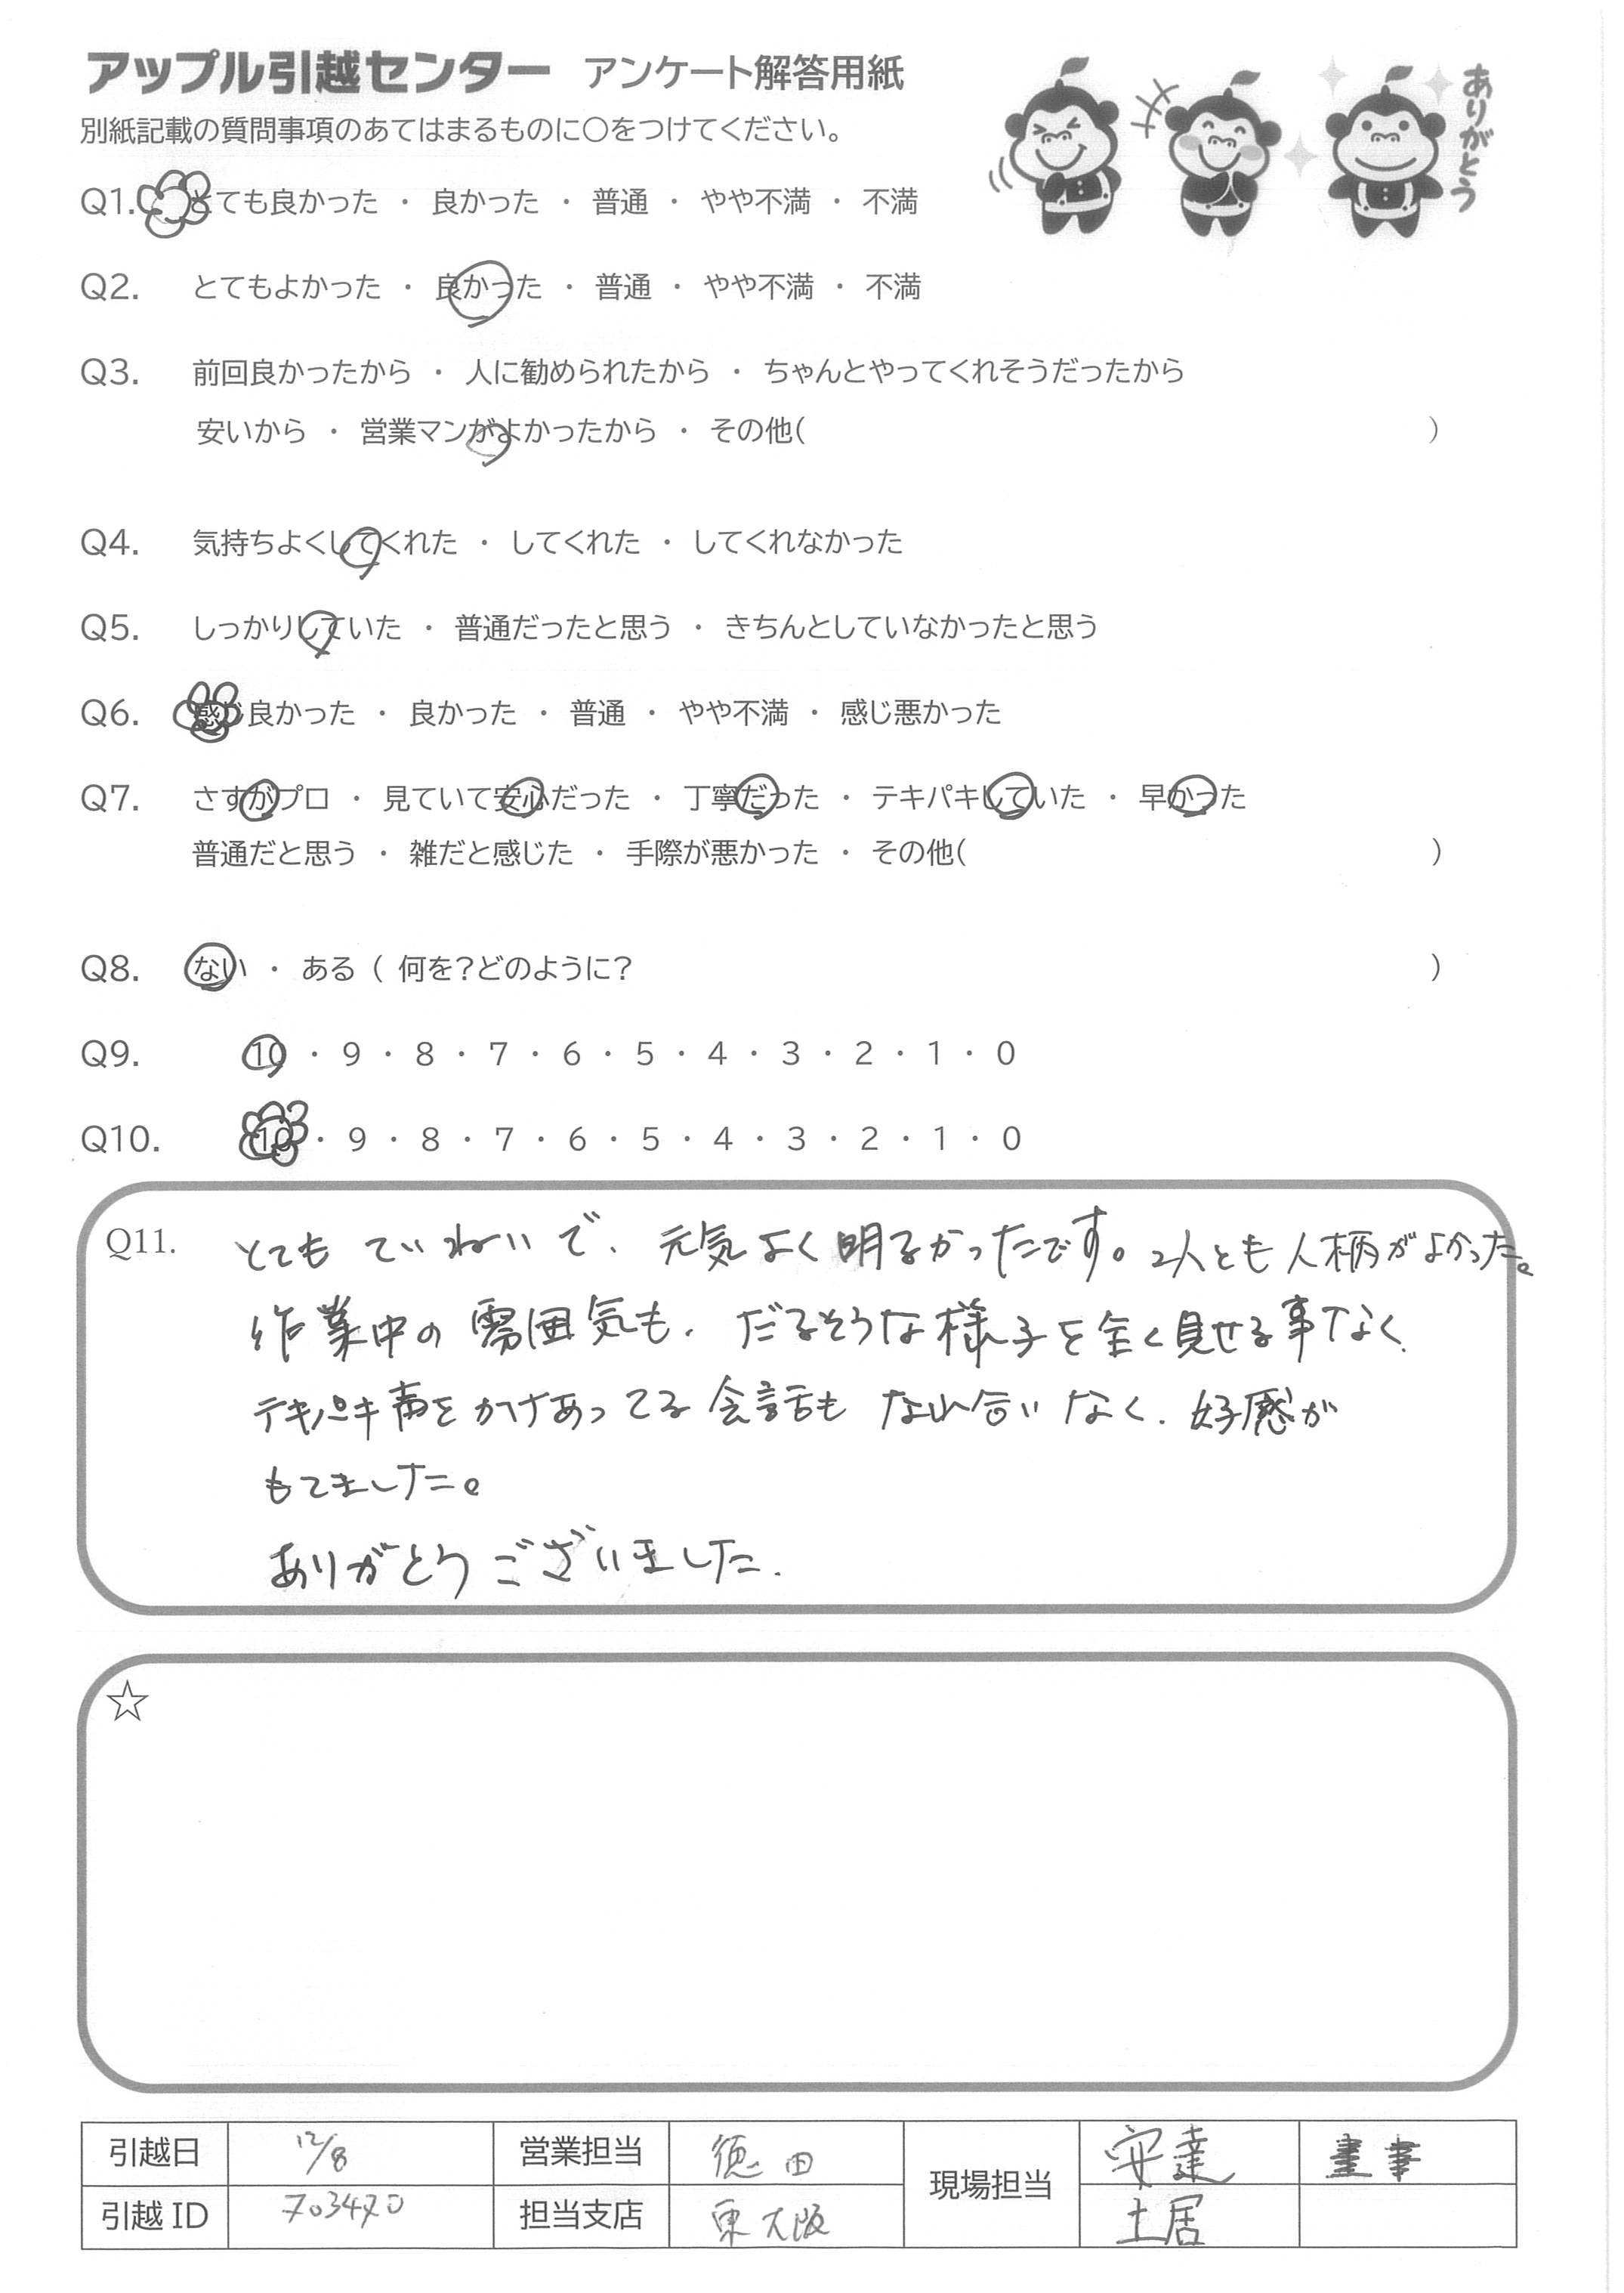 アップル引越センター アンケート解答用紙
ありがとう
別紙記載の質問事項のあてはまるものに〇をつけてください。
Q1. とても良かった ・ 良かった ・ 普通 ・ やや不満 ・ 不満
Q2. とてもよかった ・ 良かった ・ 普通 ・ やや不満 ・ 不満
Q3. 前回良かったから ・ 人に勧められたから ・ ちゃんとやってくれそうだったから
安いから ・ 営業マンがよかったから ・ その他( )
Q4. 気持ちよくしてくれた ・ してくれた ・ してくれなかった
Q5. しっかりしていた ・ 普通だったと思う ・ きちんとしていなかったと思う
Q6. 感じ良かった ・ 良かった ・ 普通 ・ やや不満 ・ 感じ悪かった
Q7. さすがプロ ・ 見ていて安心だった ・ 丁寧だった ・ テキパキしていた ・ 早かった
普通だと思う ・ 雑だと感じた ・ 手際が悪かった ・ その他( )
Q8. ない ・ ある ( 何を?どのように? )
Q9. 10 ・ 9 ・ 8 ・ 7 ・ 6 ・ 5 ・ 4 ・ 3 ・ 2 ・ 1 ・ 0
Q10. 10 ・ 9 ・ 8 ・ 7 ・ 6 ・ 5 ・ 4 ・ 3 ・ 2 ・ 1 ・ 0
Q11. とても ていねいで、元気よく明るかったです。2人とも人柄がよかった。
作業中の雰囲気も、だるそうな様子を全く見せる事なく、
テキパキ声をかけあってる会話も なれ合い なく、好感が
もてました。
ありがとうございました.
☆
引越日 12/8 営業担当 徳田 現場担当 安達
引越 ID 703470 担当支店 東大阪 土居